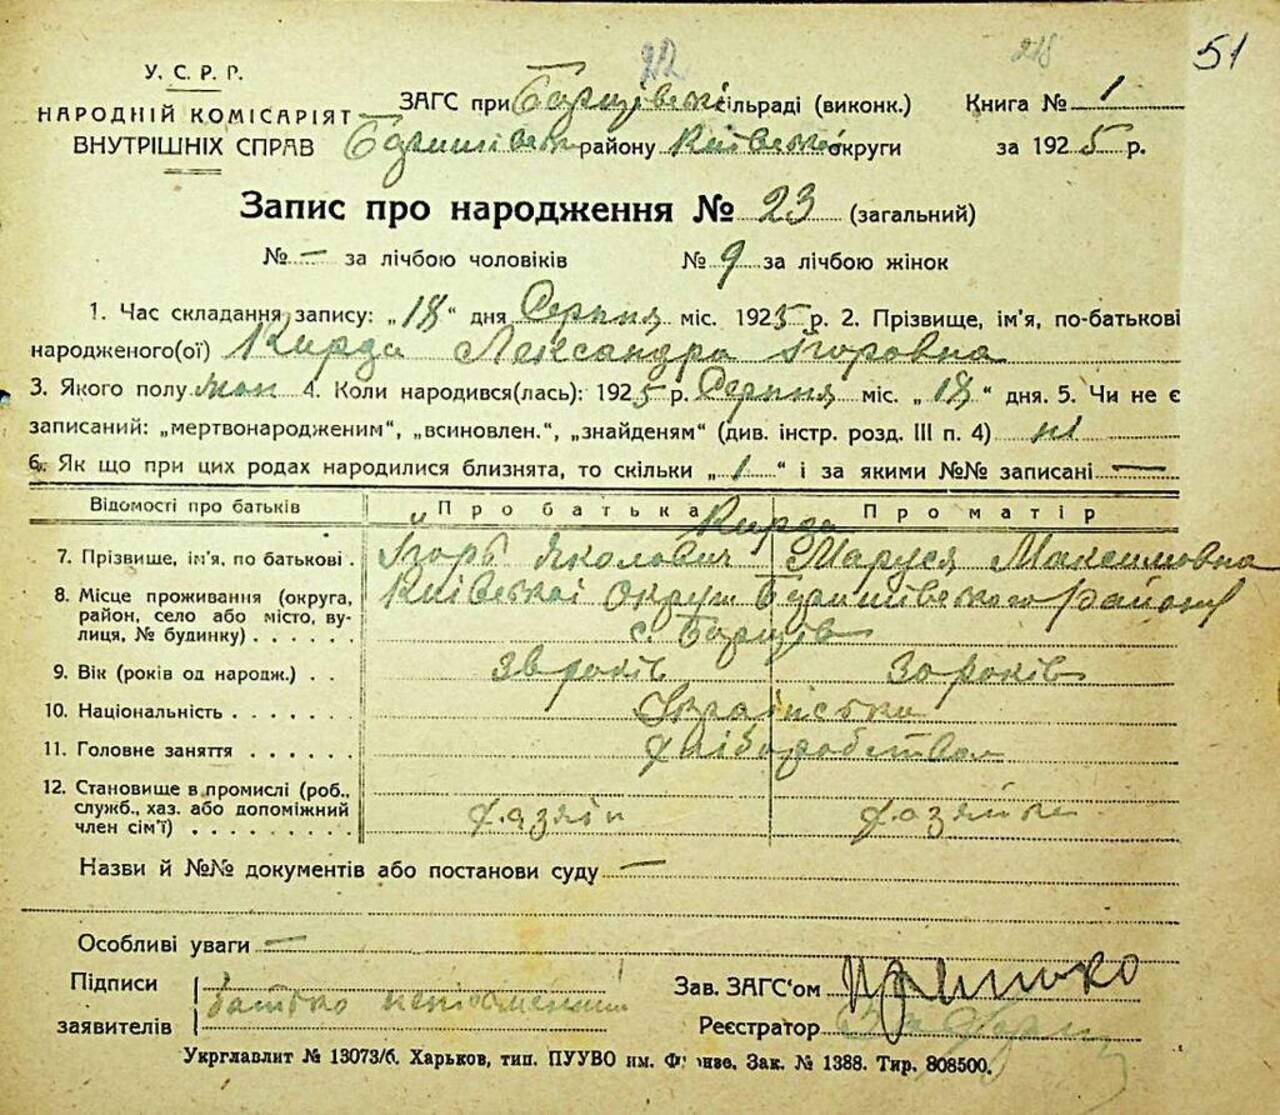 22 218 51
У. С. Р. Р.
НАРОДНІЙ КОМІСАРІЯТ
ВНУТРІШНІХ СПРАВ
ЗАГС при Борщівські сільраді (виконк.) Книга № 1
району Київської округи за 1925 р.
Запис про народження № 23 (загальний)
№ — за лічбою чоловіків № 9 за лічбою жінок
1. Час складання запису: „18“ дня Серпня міс. 1925 р. 2. Прізвище, ім'я, по-батькові
народженого(ої) Кирда Лександра Ігоровна
3. Якого полу жон 4. Коли народився(лась): 1925 р. Серпня міс. „18“ дня. 5. Чи не є
записаний: „мертвонародженим“, „всиновлен.“, „знайденям“ (див. інстр. розд. III п. 4) ні
6. Як що при цих родах народилися близнята, то скільки „1“ і за якими №№ записані —
Відомості про батьків Про батька Про матір
Кирда
7. Прізвище, ім'я, по батькові . Ігорь Яколович Маруся Максимовна
8. Місце проживання (округа, район, село або місто, вулиця, № будинку) . . . . . . Київської Округи Району
с. Борщів
9. Вік (років од народж.) . . 38 років 30 років
10. Національність . . . . . . . Українська
11. Головне заняття . . . . . . Хліборобство
12. Становище в промислі (роб., служб., хаз. або допоміжний член сім'ї) . . . . . . . . . Хазяїн Хазяйка
Назви й №№ документів або постанови суду —
Особливі уваги —
Підписи
заявителів
батько неписьменний
Зав. ЗАГС'ом
Реєстратор
Укрглавлит № 13073/б. Харьков, тип. ПУУВО им. Фрунзе. Зак. № 1388. Тир. 808500.